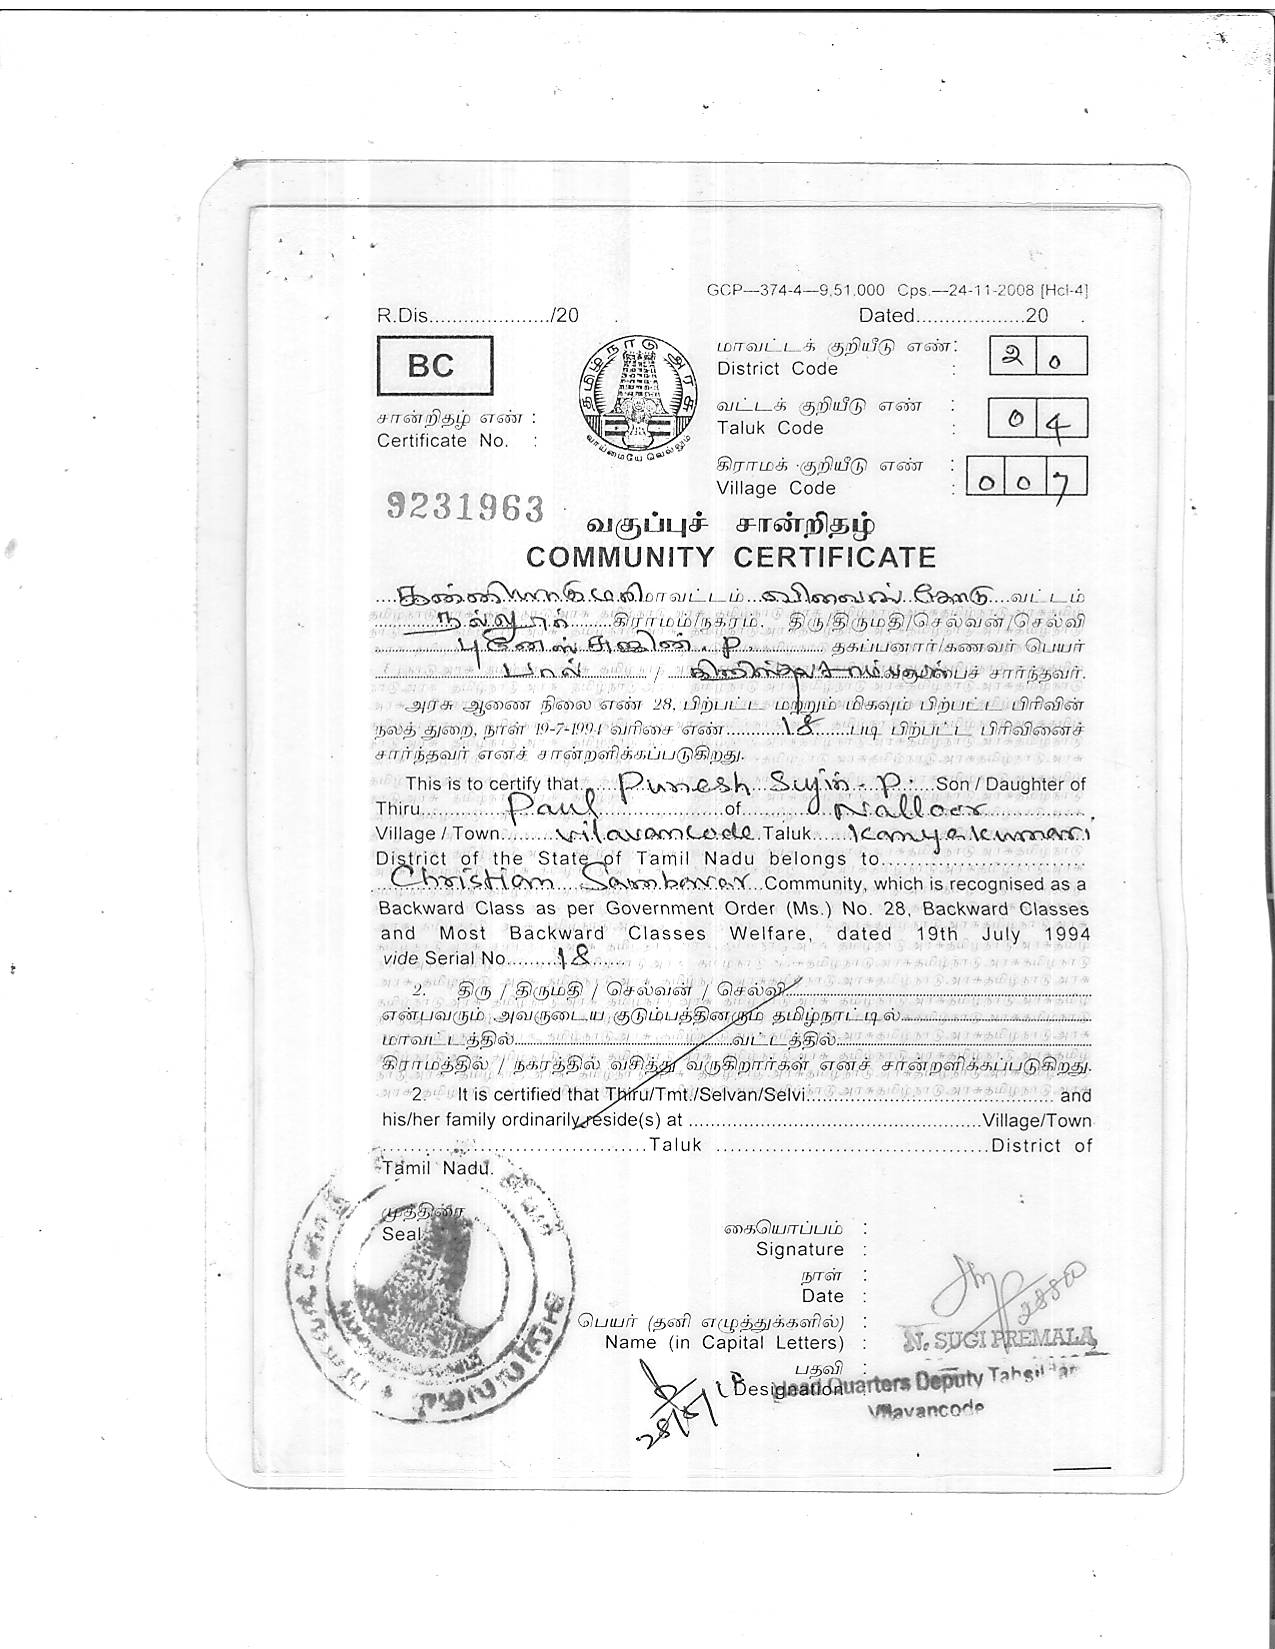 GCP—374-4—9,51,000 Cps.—24-11-2008 [Hcl-4]
R.Dis...................../20 .
Dated..................20 .
BC
தமிழ்நாடு அரசு
வாய்மையே வெல்லும்
மாவட்டக் குறியீடு எண்:
District Code :
20
சான்றிதழ் எண் :
Certificate No. :
வட்டக் குறியீடு எண் :
Taluk Code :
04
கிராமக் குறியீடு எண் :
Village Code :
007
9231963
வகுப்புச் சான்றிதழ்
COMMUNITY CERTIFICATE
கன்னியாகுமரி மாவட்டம் விளவங்கோடு வட்டம்
நல்லூர் கிராமம்/நகரம். திரு/திருமதி/செல்வன்/செல்வி
புனேஸ் சுஜின். P. தகப்பனார்/கணவர் பெயர்
பால் / கிறிஸ்தவ சாம்பவர் வகுப்பைச் சார்ந்தவர்.
அரசு ஆணை நிலை எண் 28, பிற்பட்ட மற்றும் மிகவும் பிற்பட்ட பிரிவின்
நலத் துறை, நாள் 19-7-1994 வரிசை எண் 18 படி பிற்பட்ட பிரிவினைச்
சார்ந்தவர் எனச் சான்றளிக்கப்படுகிறது.
This is to certify that Punesh Sujin. P. Son / Daughter of
Thiru Paul of Nalloor
Village / Town Vilavancode Taluk Kanyakumari
District of the State of Tamil Nadu belongs to
Christian Sambavar Community, which is recognised as a
Backward Class as per Government Order (Ms.) No. 28, Backward Classes
and Most Backward Classes Welfare, dated 19th July 1994
vide Serial No. 18
2. திரு / திருமதி / செல்வன் / செல்வி
என்பவரும் அவருடைய குடும்பத்தினரும் தமிழ்நாட்டில்
மாவட்டத்தில் வட்டத்தில்
கிராமத்தில் / நகரத்தில் வசித்து வருகிறார்கள் எனச் சான்றளிக்கப்படுகிறது.
2. It is certified that Thiru/Tmt./Selvan/Selvi and
his/her family ordinarily reside(s) at Village/Town
Taluk District of
Tamil Nadu.
முத்திரை
Seal
கையொப்பம் :
Signature :
நாள் :
Date :
பெயர் (தனி எழுத்துக்களில்) :
Name (in Capital Letters) :
N. SUGI PREMALA
பதவி :
Designation
Head Quarters Deputy Tahsildar
Vilavancode
28/5/18